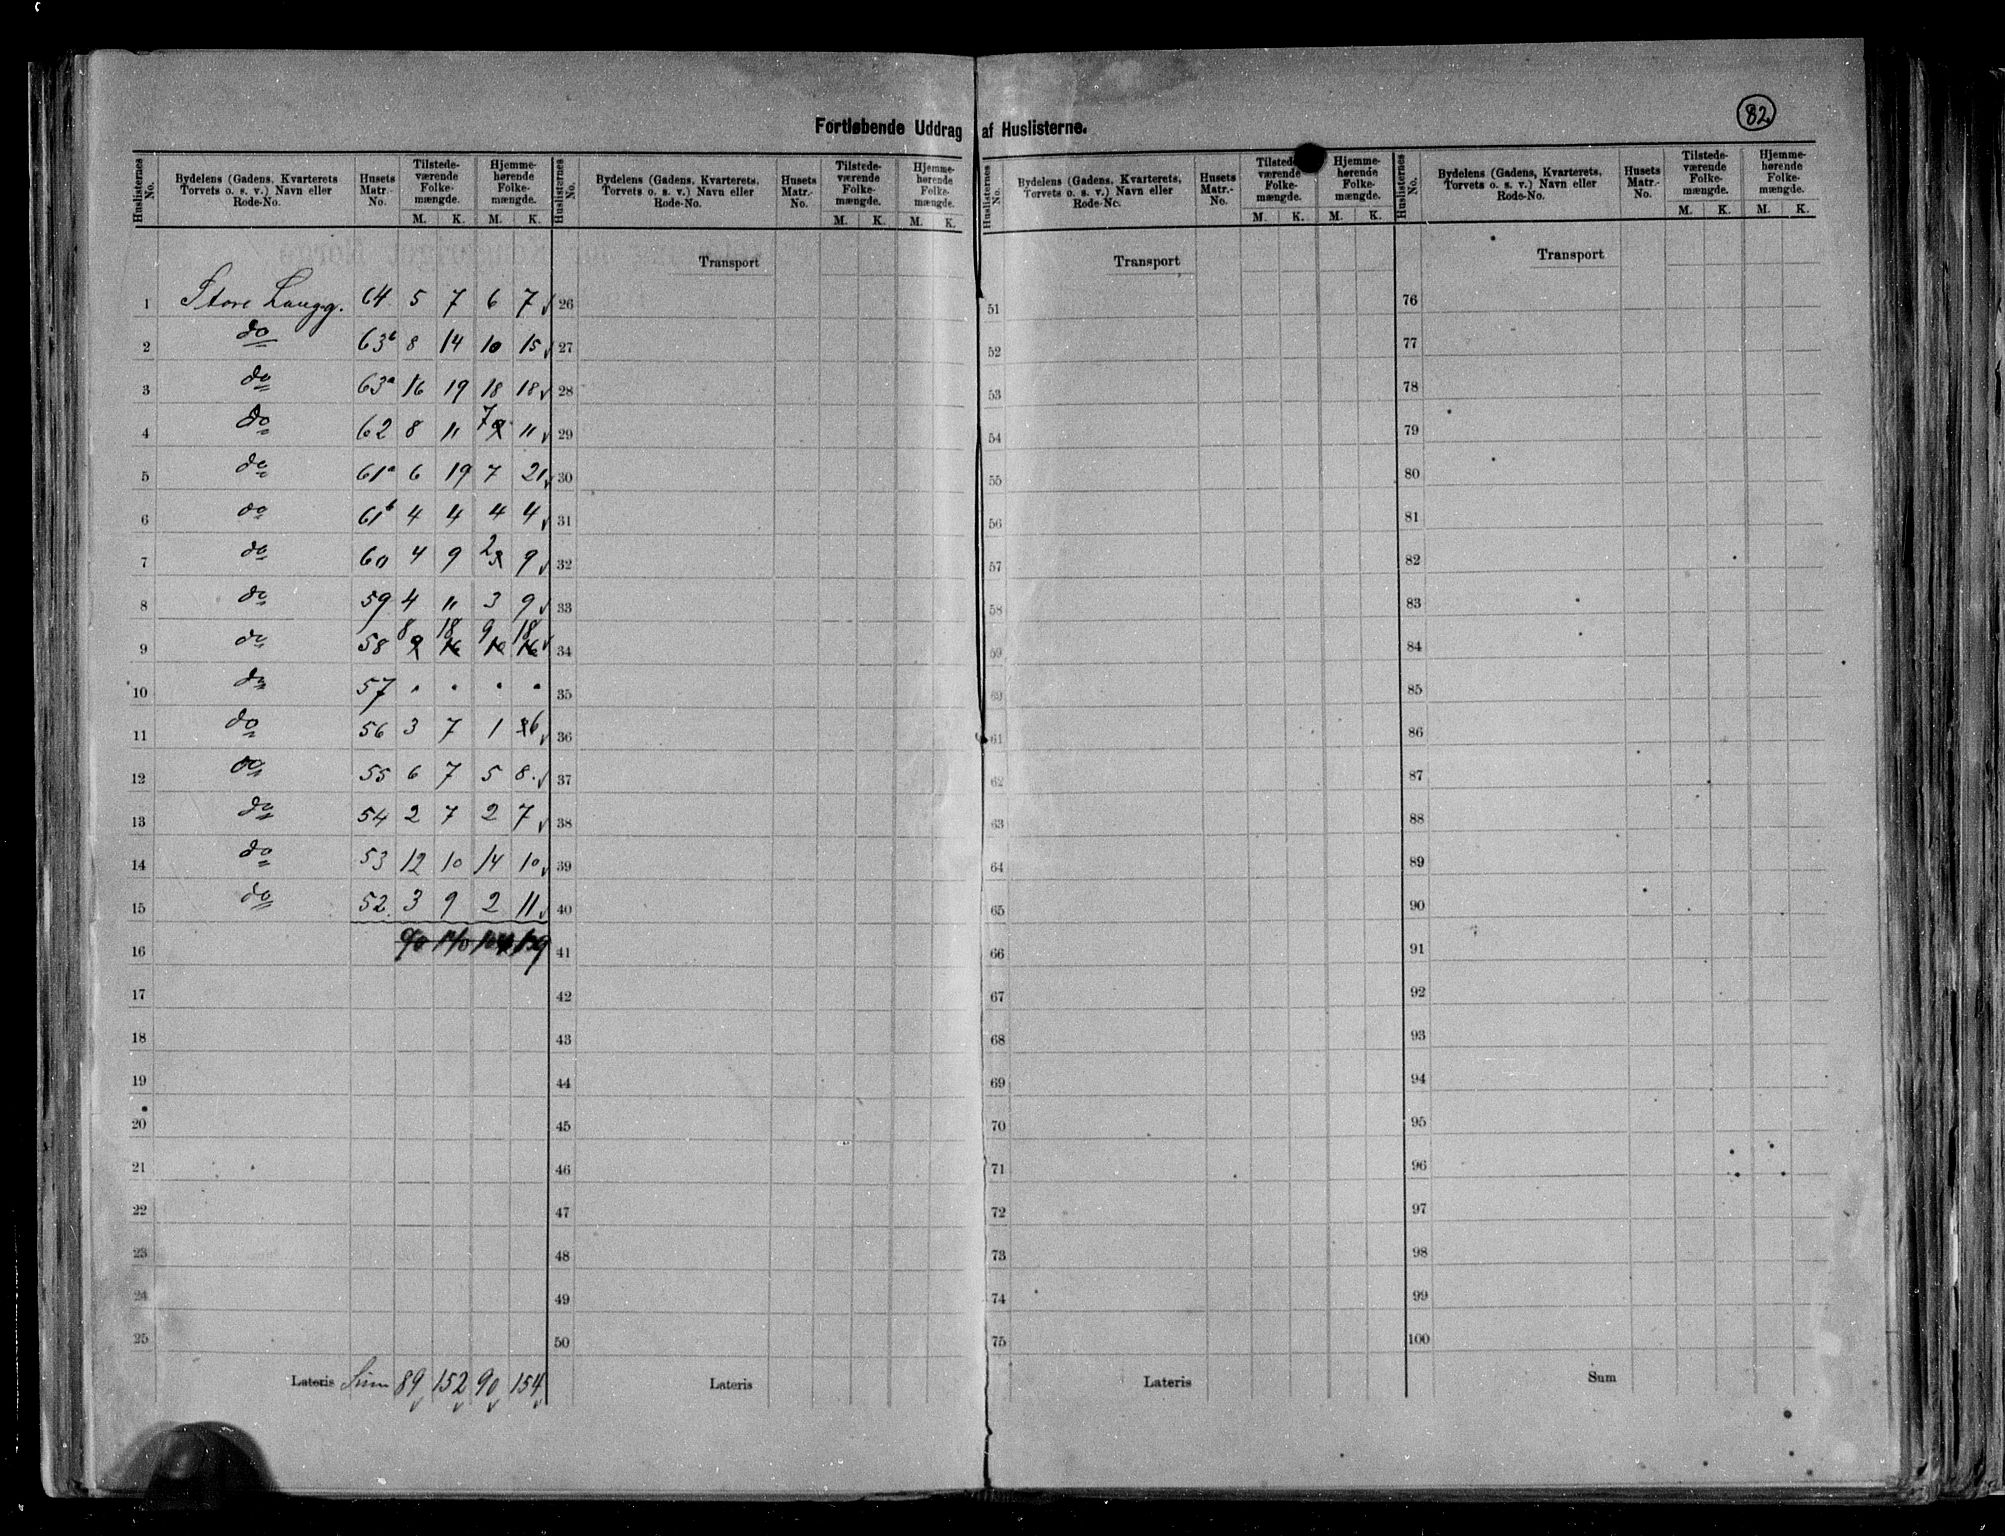 82
Fortløbende Uddrag af Huslisterne.
Huslisternes No. Bydelens (Gadens, Kvarterets Torvets o. s. v.) Navn eller Rode-No. Husets Matr.-No. Tilstedeværende Folkemængde. M. K. Hjemmehørende Folkemængde. M. K.
Huslisternes No. Bydelens (Gadens, Kvarterets, Torvets o. s. v.) Navn eller Rode-No. Husets Matr.-No. Tilstedeværende Folkemængde. M. K. Hjemmehørende Folkemængde. M. K.
Huslisternes No. Bydelens (Gadens, Kvarterets, Torvets o. s. v.) Navn eller Rode-No. Husets Matr.-No. Tilstedeværende Folkemængde. M. K. Hjemmehørende Folkemængde. M. K.
Huslisternes No. Bydelens (Gadens, Kvarterets, Torvets o. s. v.) Navn eller Rode-No. Husets Matr.-No. Tilstedeværende Folkemængde. M. K. Hjemmehørende Folkemængde. M. K.
Transport Transport Transport
1 Store Langg. 64 5 7 6 7 26 51 76
2 do 63b 8 14 10 15 27 52 77
3 do 63a 16 19 18 18 28 53 78
4 do 62 8 11 7 11 29 54 79
5 do 61a 6 19 7 21 30 55 80
6 do 61b 4 4 4 4 31 56 81
7 do 60 4 9 2 9 32 57 82
8 do 59 4 11 3 9 33 58 83
9 do 58 8 18 9 18 34 59 84
10 do 57 . . . . 35 60 85
11 do 56 3 7 1 6 36 61 86
12 do 55 6 7 5 8 37 62 87
13 do 54 2 7 2 7 38 63 88
14 do 53 12 10 14 10 39 64 89
15 do 52 3 9 2 11 40 65 90
16 41 66 91
17 42 67 92
18 43 68 93
19 44 69 94
20 45 70 95
21 46 71 96
22 47 72 97
23 48 73 98
24 49 74 99
25 50 75 100
Lateris Sum 89 152 90 154 Lateris Lateris Sum